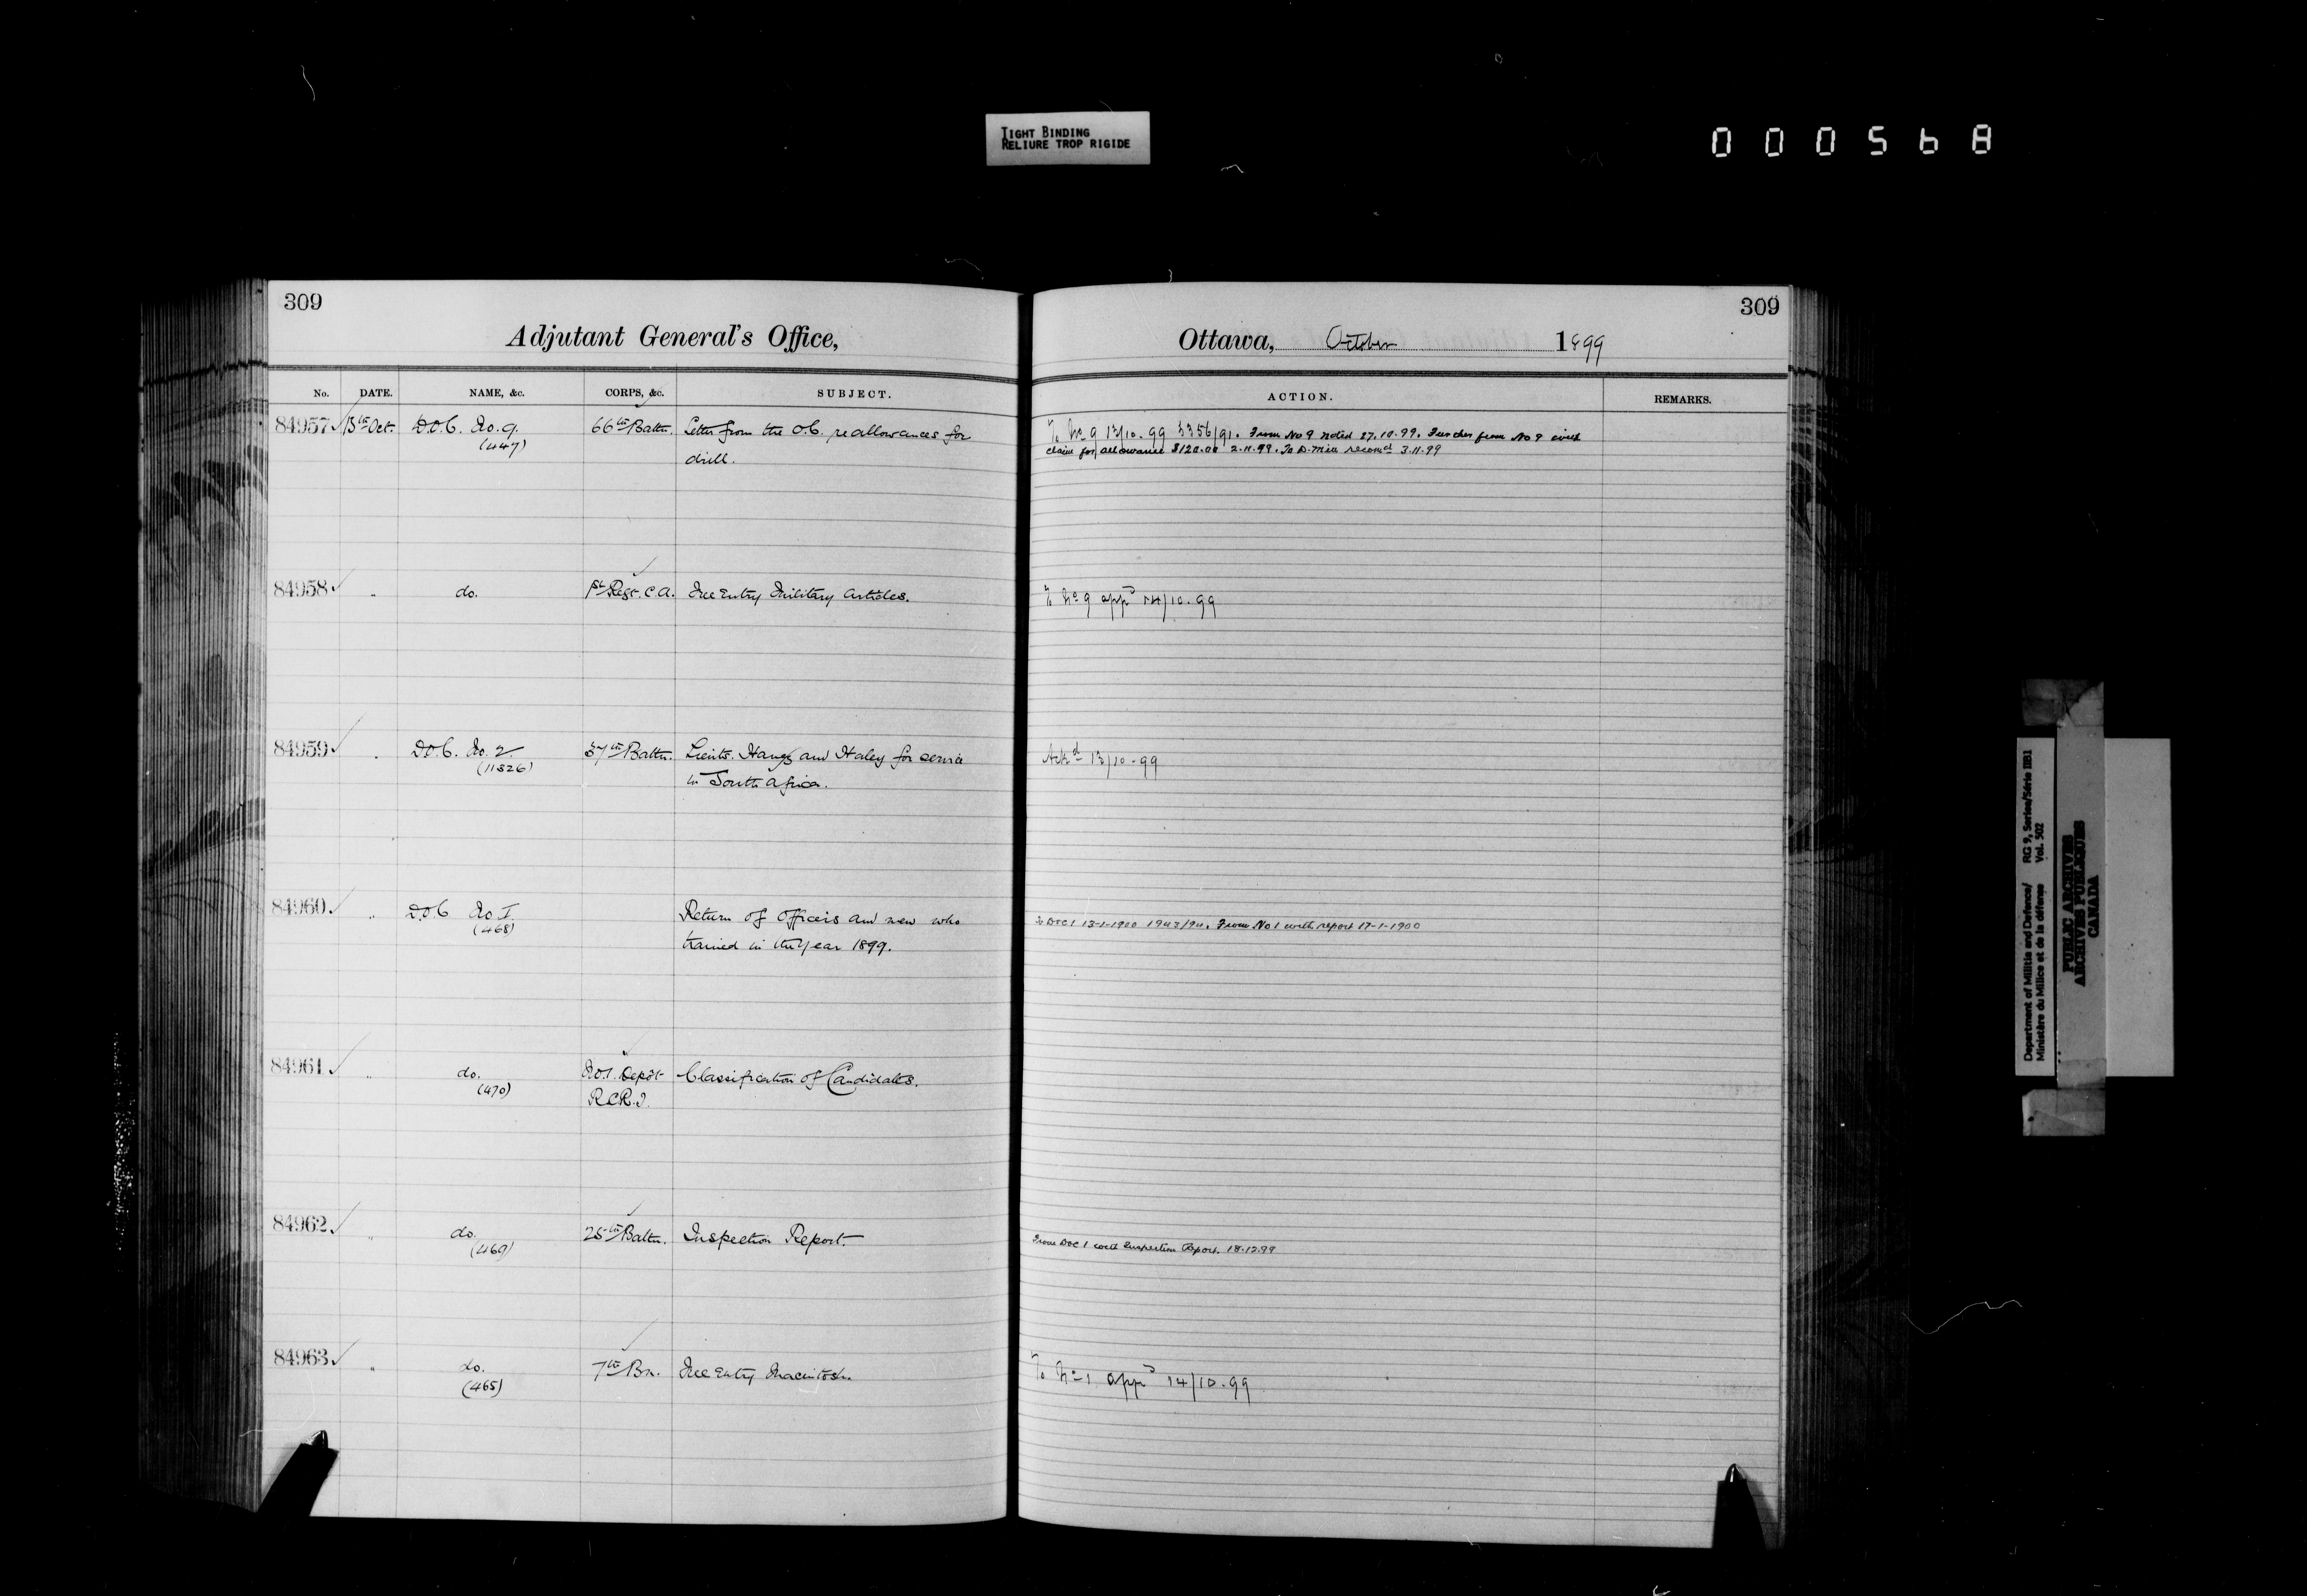 TIGHT BINDING
RELIURE TROP RIGIDE
000568
309
309
Adjutant General's Office,
Ottawa, October 1899
No. DATE. NAME, &c. CORPS, &c. SUBJECT.
ACTION. REMARKS.
84957 13th Oct. D.O.C. No. 9. 66th Battn. Letter from the O.C. re allowances for
(447) drill.
To No 9 13/10.99 3356/91. From No 9 noted 27.10.99. Further from No 9 with
claim for allowance $120.00 2.11.99. To D. Min recomd 3.11.99
84958 " do. 1st Regt. C.A. Free Entry Military Articles.
To No 9 appd 14/10.99
84959 " D.O.C. No. 2 37th Battn. Lieuts. and Haley for service
(11326) in South Africa.
Ackd 13/10.99
84960 " D.O.C No I. Return of Officers and men who
(468) trained in the Year 1899.
To DOC 1 13-1-1900 1943/94. From No 1 with report 17-1-1900
84961 " do. No. 1. Depôt Classification of Candidates.
(470) R.C.R.I.
84962 " do. 25th Battn. Inspection Report.
(469)
From DOC 1 with Inspection Report. 18.12.99
84963 " do. 7th Bn. Free Entry Macintosh.
(465)
To No 1 appd 14/10.99
Department of Militia and Defence/ RG 9, Series/Série IIB1
Ministère du Milice et de la défense Vol. 502
PUBLIC ARCHIVES
ARCHIVES PUBLIQUES
CANADA